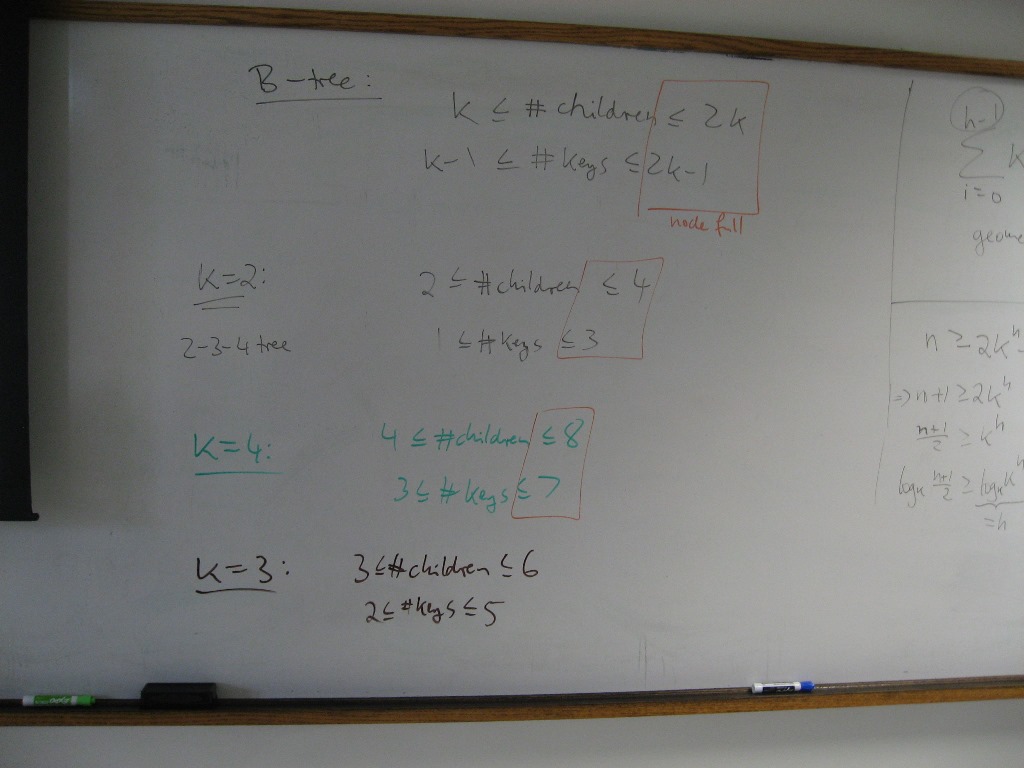 B-tree:
k ≤ # children ≤ 2k
k-1 ≤ # keys ≤ 2k-1
node full
k=2:
2 ≤ #children ≤ 4
2-3-4 tree
1 ≤ #keys ≤ 3
k=4:
4 ≤ #children ≤ 8
3 ≤ # keys ≤ 7
k=3:
3 ≤ #children ≤ 6
2 ≤ #keys ≤ 5
h-1
∑ k
i=0
geome
n ≥ 2k^h-
⇒ n+1 ≥ 2k^h
(n+1)/2 ≥ k^h
log_k (n+1)/2 ≥ log_k k^h
=h